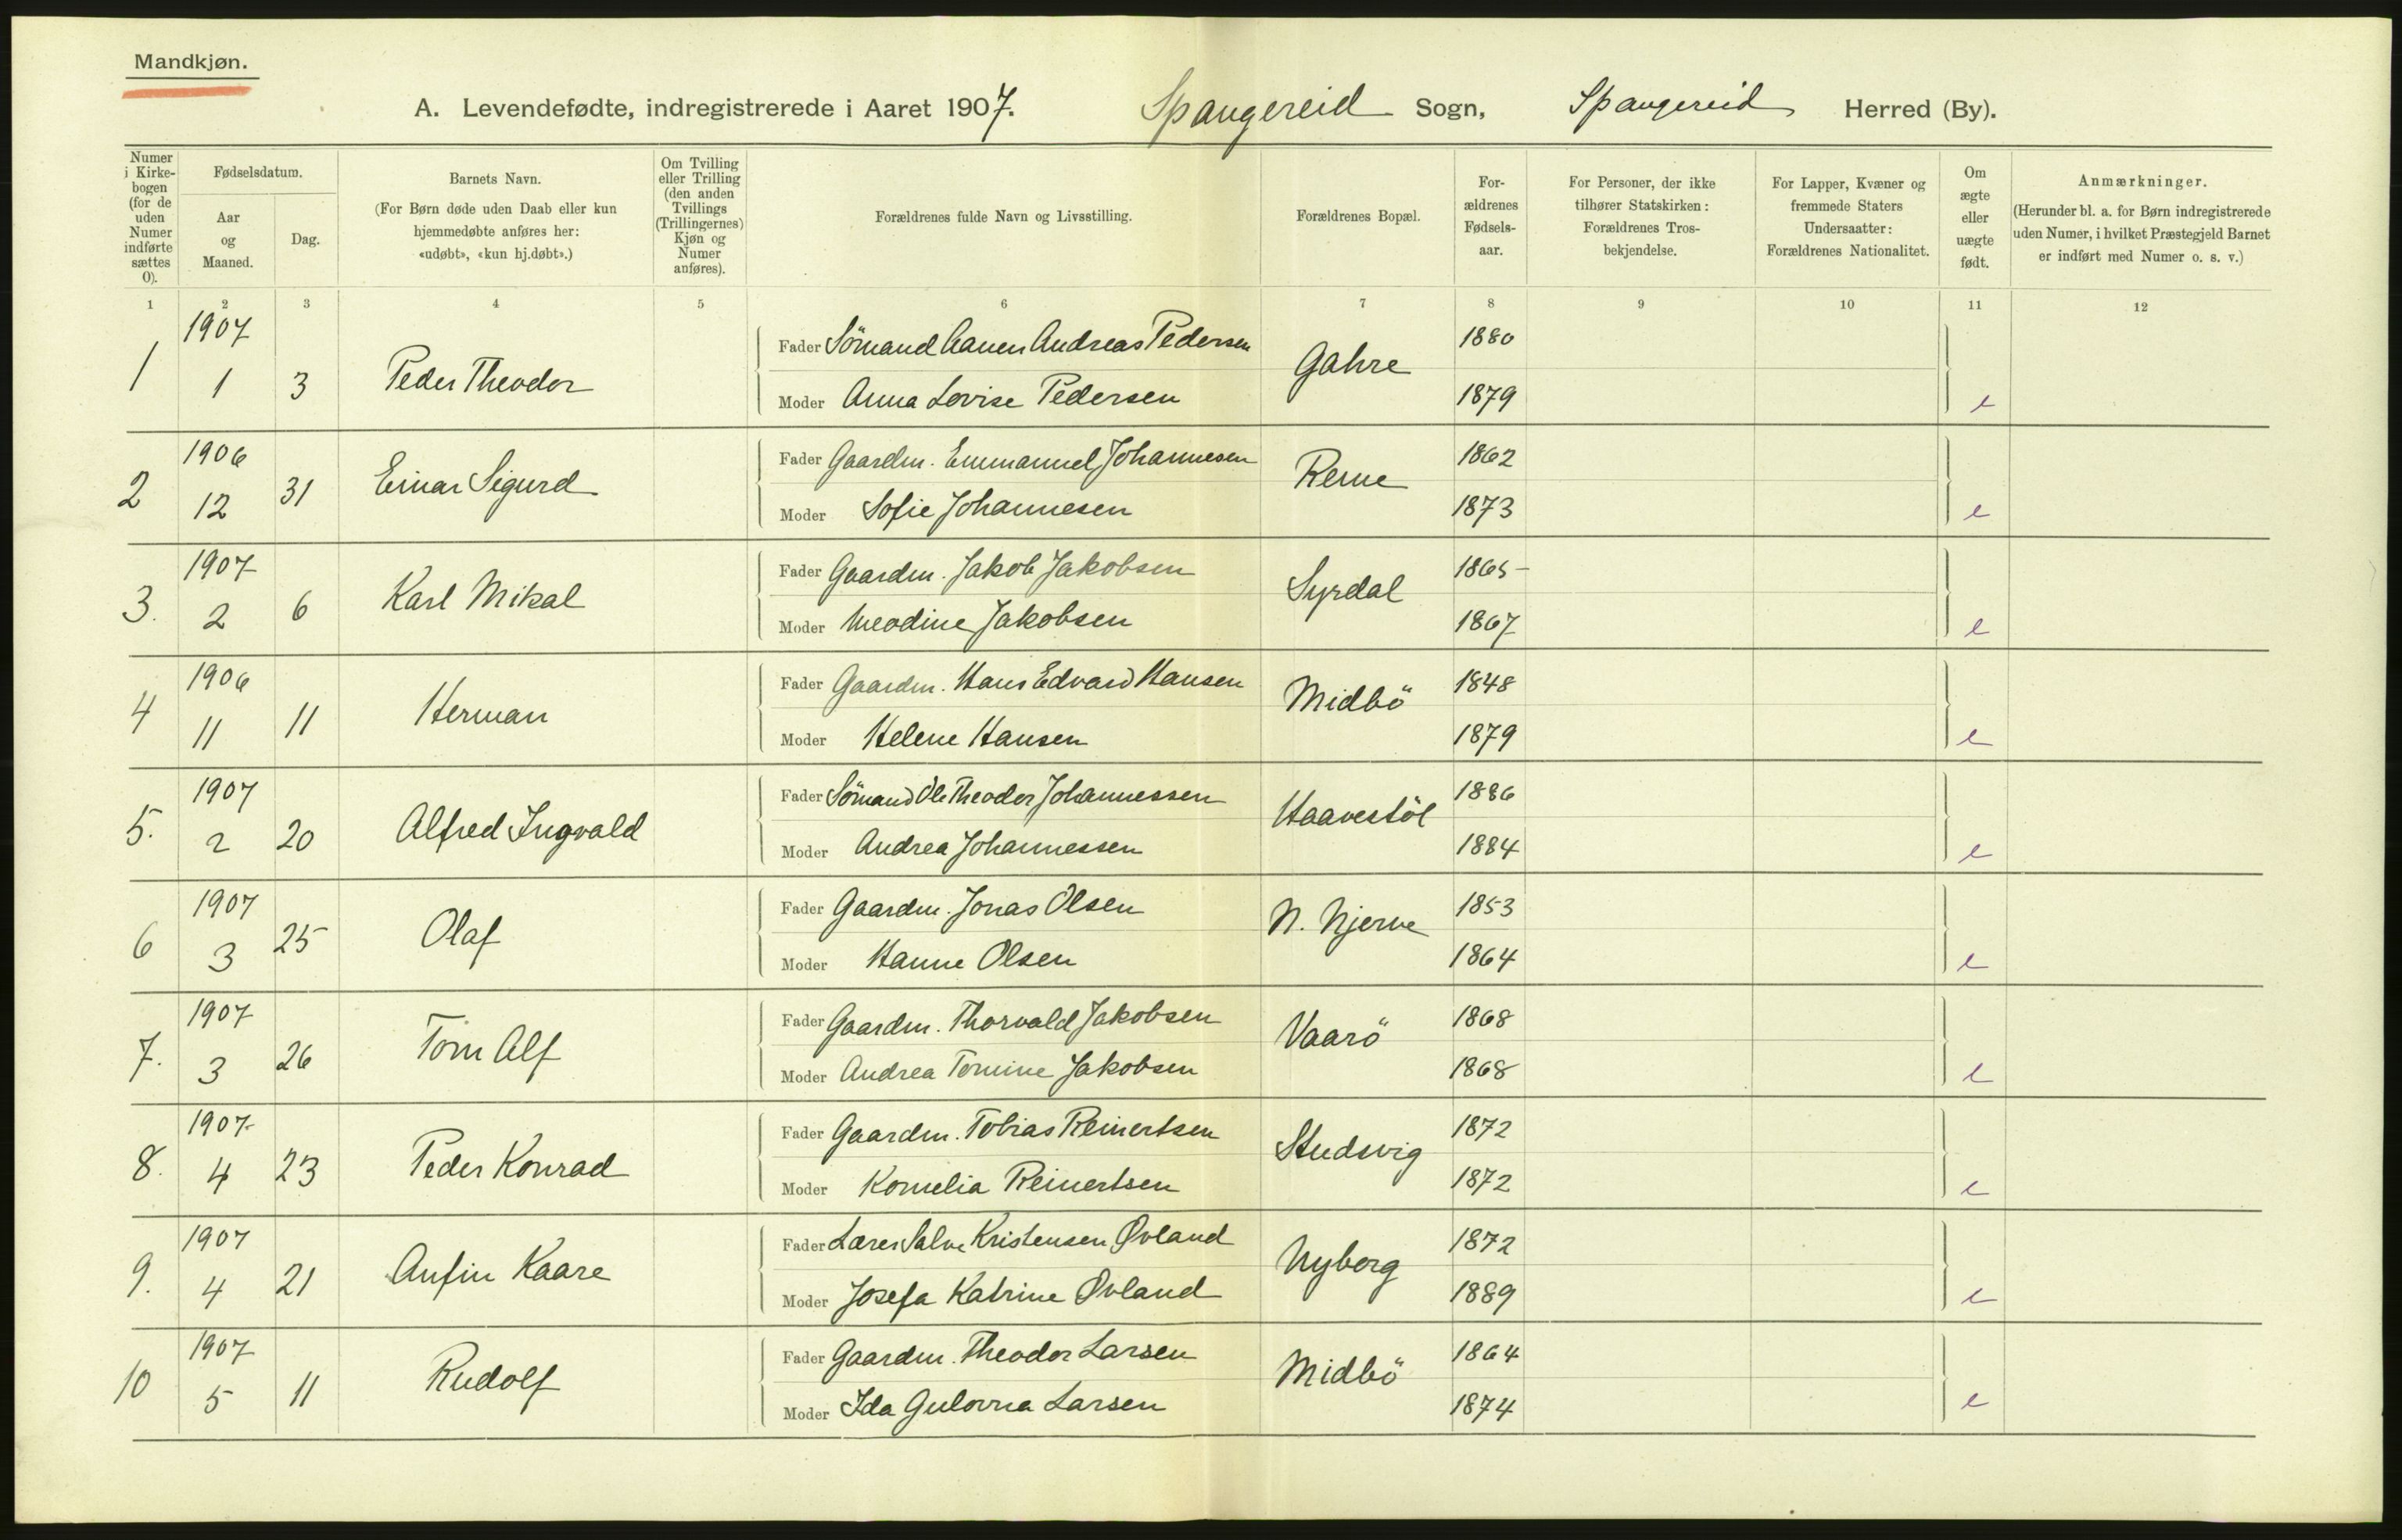 Mandkjøn.
A. Levendefødte, indregistrerede i Aaret 1907. Spangereid Sogn, Spangereid Herred (By).
Numer i Kirkebogen (for de uden Numer indførte sættes 0).
Fødselsdatum.
Aar og Maaned.
Dag.
Barnets Navn.
(For Børn døde uden Daab eller kun hjemmedøbte anføres her: «udøbt», «kun hj.døbt».)
Om Tvilling eller Trilling (den anden Tvillings (Trillingernes) Kjøn og Numer anføres).
Forældrenes fulde Navn og Livsstilling.
Forældrenes Bopæl.
Forældrenes Fødselsaar.
For Personer, der ikke tilhører Statskirken: Forældrenes Trosbekjendelse.
For Lapper, Kvæner og fremmede Staters Undersaatter: Forældrenes Nationalitet.
Om ægte eller uægte født.
Anmærkninger.
(Herunder bl. a. for Børn indregistrerede uden Numer, i hvilket Præstegjeld Barnet er indført med Numer o. s. v.)
1 2 3 4 5 6 7 8 9 10 11 12
1907
Fader Sömand Andreas Pedersen 1880
1 1 3 Peder Theodor Gahre
Moder Anna Lovise Pedersen 1879 e
1906
Fader Gaardm. Emmanuel Johannesen 1862
2 12 31 Einar Sigurd Rerne
Moder Sofie Johannesen 1873 e
1907
Fader Gaardm. Jakob Jakobsen 1865
3. 2 6 Karl Mikal Syrdal
Moder Jakobsen 1867 e
1906
Fader Gaardm. Hans Edvard Hansen 1848
4 11 11 Herman Midbö
Moder Helene Hansen 1879 e
1907
Fader Sömand Ole Theodor Johannessen 1886
5. 2 20 Alfred Ingvald Haavestöl
Moder Andrea Johannessen 1884 e
1907
Fader Gaardm. Jonas Olsen 1853
6 3 25 Olaf N. Njerve
Moder Hanne Olsen 1864 e
1907
Fader Gaardm. Thorvald Jakobsen 1868
7. 3 26 Tom Alf Vaarö
Moder Andrea Tomine Jakobsen 1868 e
1907
Fader Gaardm. Tobias Reinertsen 1872
8. 4 23 Peder Konrad Studsvig
Moder Kornelia Reinertsen 1872 e
1907
Fader Lærer Salve Kristensen Øvland 1872
9. 4 21 Anfin Kaare Nyborg
Moder Josefa Katrine Øvland 1889 e
1907
Fader Gaardm. Theodor Larsen 1864
10 5 11 Rudolf Midbö
Moder Ida Gulovna Larsen 1874 e